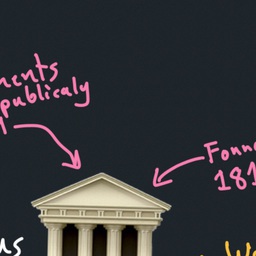 ments
publicaly
Foun
181
us